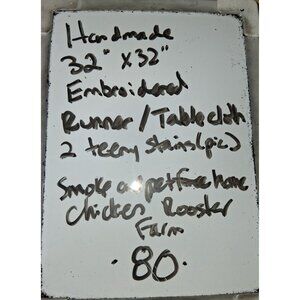 Handmade
32" x 32"
Embroidered
Runner/Tablecloth
2 teeny stains (pic)
Smoke and pet free home
Chicken Rooster
Farm
·80·